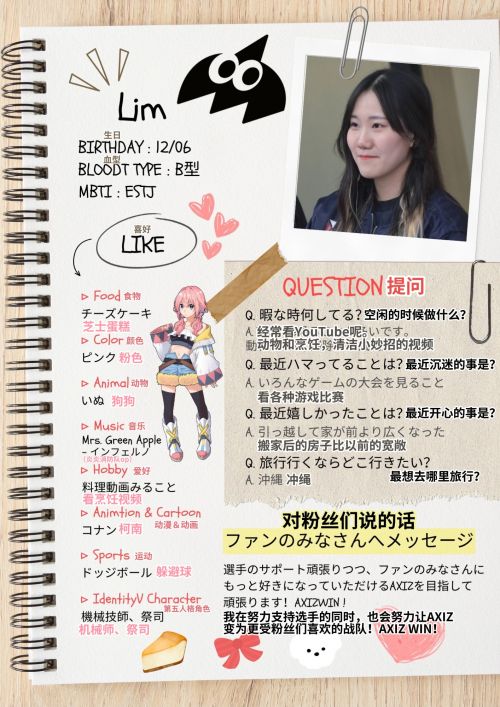 Lim
生日
BIRTHDAY : 12/06
血型
BLOODT TYPE : B型
MBTI : ESTJ
喜好
LIKE
Food 食物
チーズケーキ
芝士蛋糕
Color 颜色
ピンク 粉色
Animal 动物
いぬ 狗狗
Music 音乐
Mrs. Green Apple
- インフェルノ
Hobby 爱好
料理動画みること
看烹饪视频
Animtion & Cartoon
动漫&动画
コナン 柯南
Sports 运动
ドッジボール 躲避球
IdentityV Character
第五人格角色
機械技師、祭司
机械师、祭司
QUESTION 提问
Q. 暇な時何してる? 空闲的时候做什么?
A. 经常看YouTube呢 いです。
動动物和烹饪,清洁小妙招的视频
Q. 最近ハマってることは? 最近沉迷的事是?
A. いろんなゲームの大会を見ること
看各种游戏比赛
Q. 最近嬉しかったことは? 最近开心的事是?
A. 引っ越して家が前より広くなった
搬家后的房子比以前的宽敞
Q. 旅行行くならどこ行きたい?
最想去哪里旅行?
A. 沖縄 冲绳
对粉丝们说的话
ファンのみなさんへメッセージ
選手のサポート頑張りつつ、ファンのみなさんに
もっと好きになっていただけるAXIZを目指して
頑張ります! AXIZWIN !
我在努力支持选手的同时，也会努力让AXIZ
变为更受粉丝们喜欢的战队! AXIZ WIN!